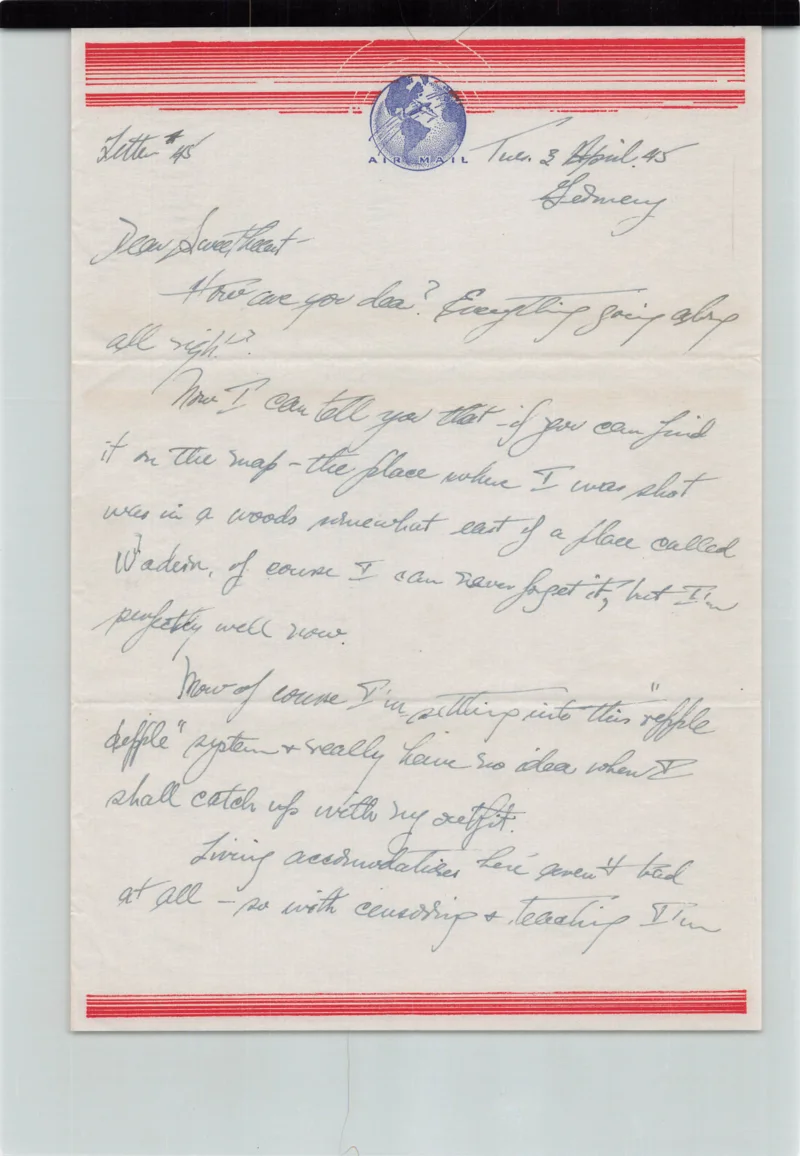 AIR MAIL
Letter # 45
Tues. 3 April 45
Germany
Dear Sweetheart -
How are you dea? Everything going along
all right?
Now I can tell you that - if you can find
it on the map - the place where I was shot
was in a woods somewhat east of a place called
Wadern. Of course I can never forget it, but I'm
perfectly well now.
Now of course I'm settling into this "repple
depple" system & really have no idea when I
shall catch up with my outfit.
Living accomodations here aren't bad
at all - so with censoring & teaching I'm